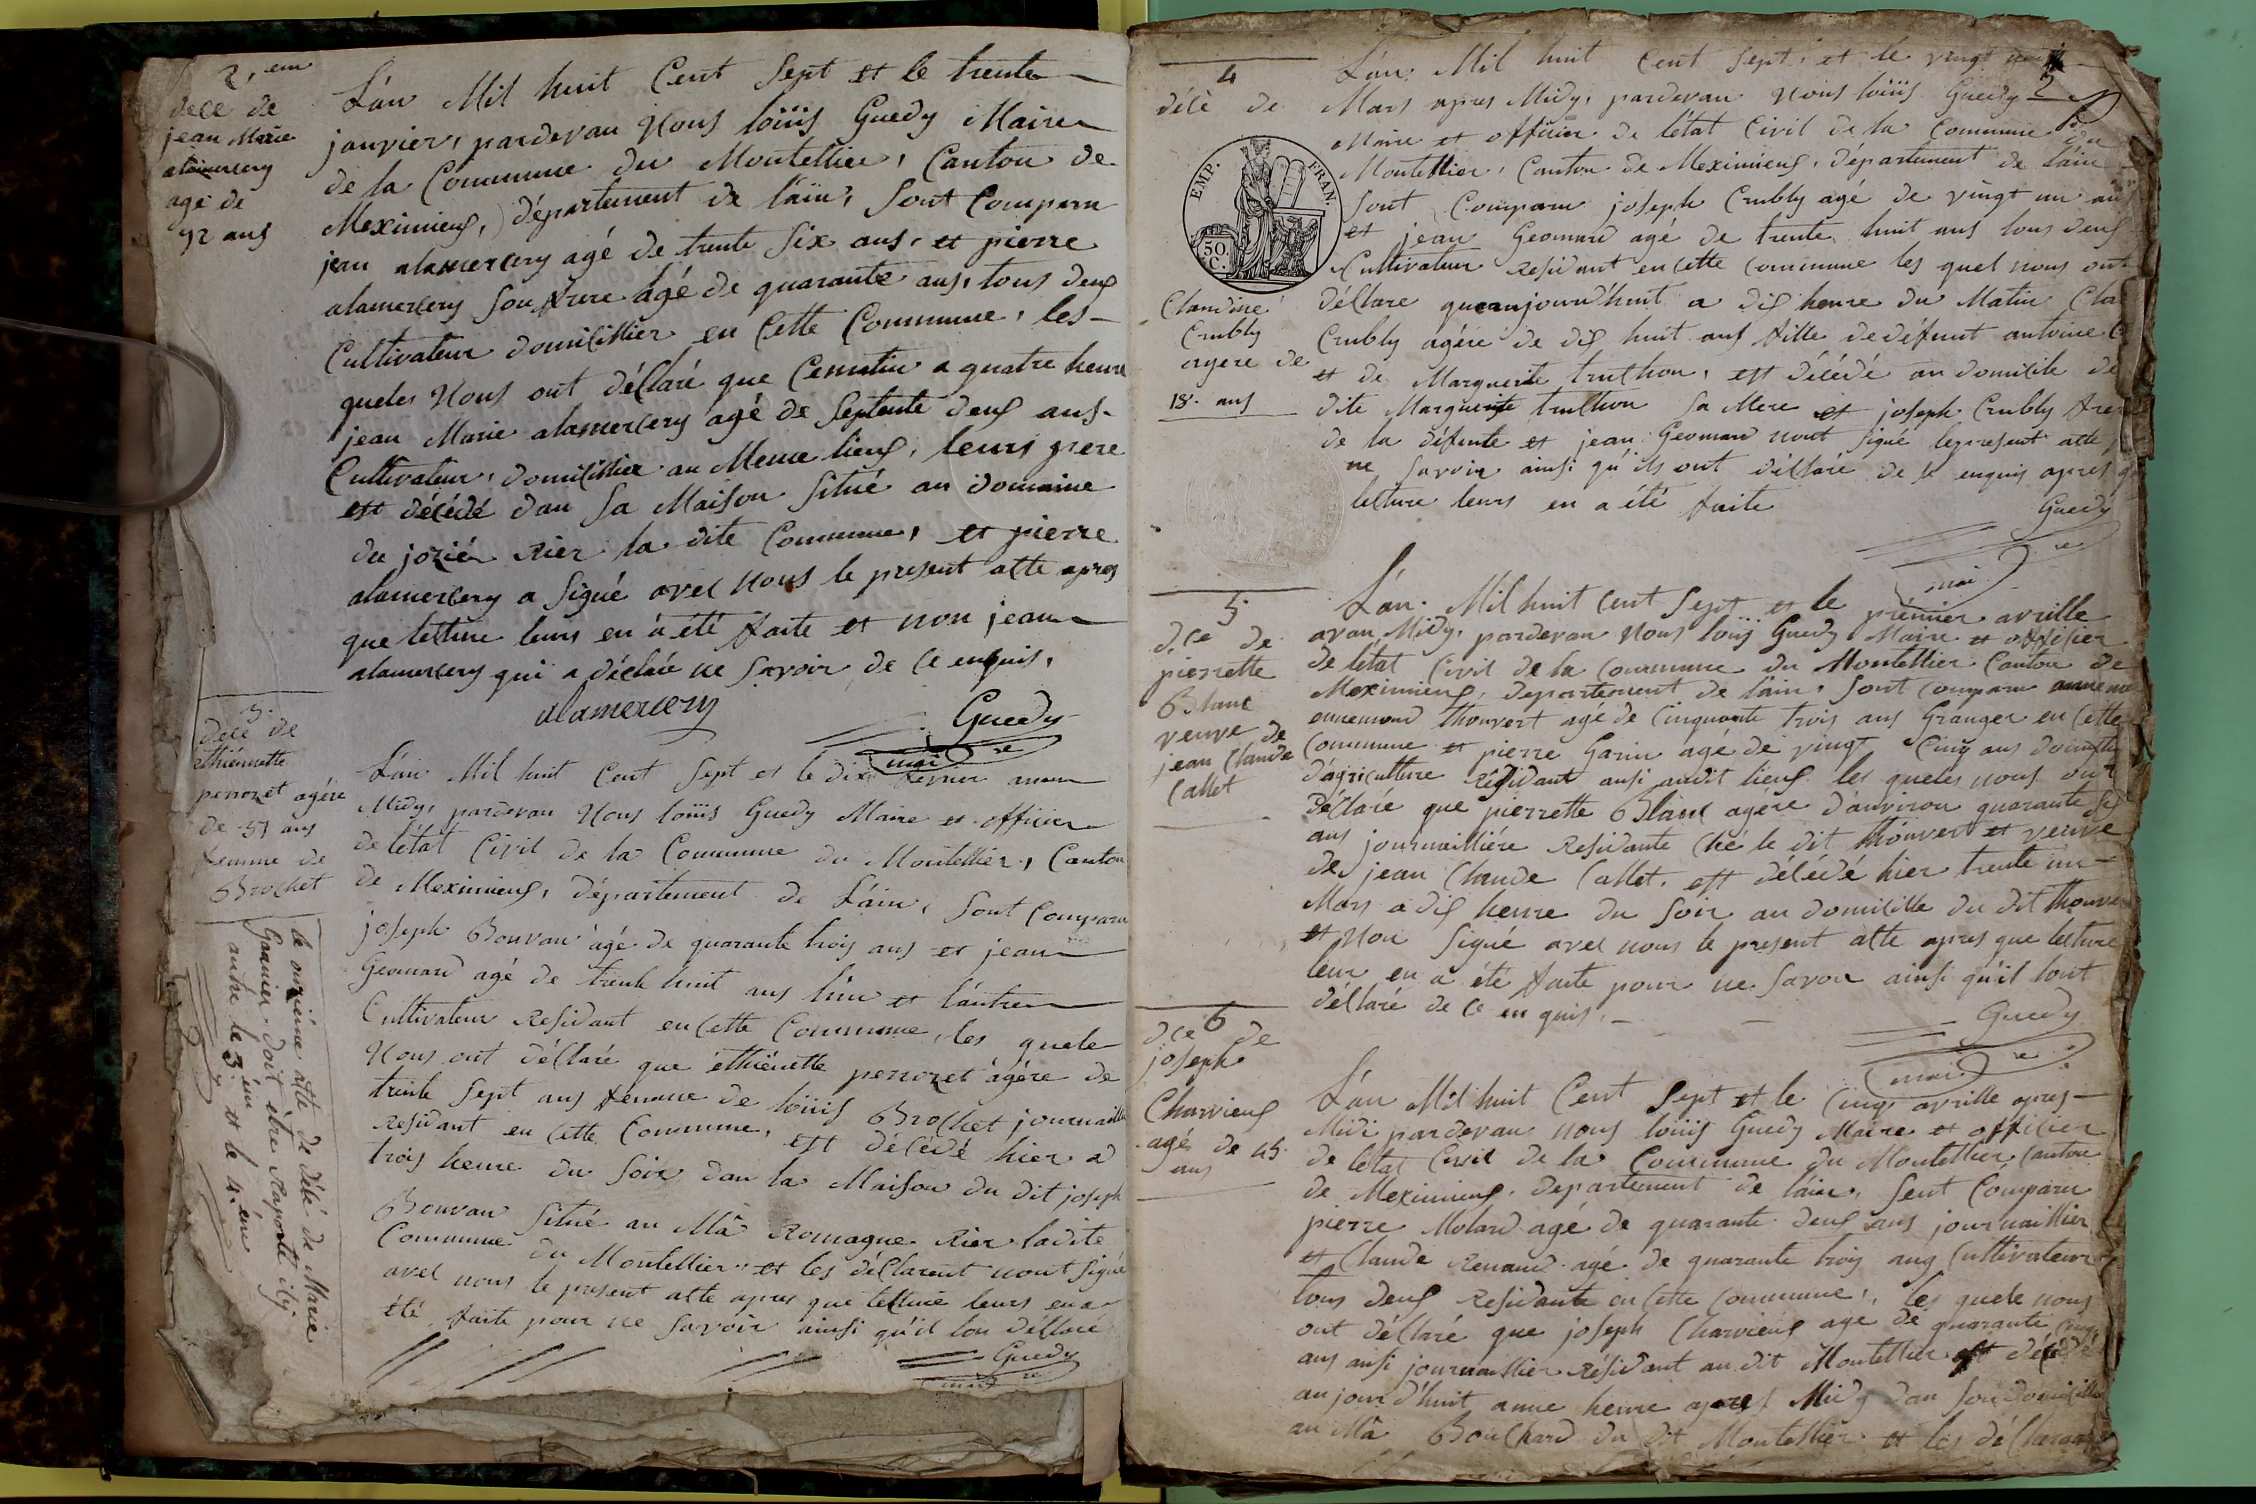 2.em
décé de
jean Marie
alamercery
agé de
72 ans
L'án Mil huit Cent Sept et le trente
janvier, pardevan Nous loüis Guedy Maire
de la Commune du Montellier, Canton de
Meximieux, département de l'áin, Sont Comparu
jean alamercery agé de trente Six ans, et pierre
alamercery Son frere âgé de quarante ans, tous deux
Cultivateur domicillier en Cette Commune, les-
queles Nous ont déclaré que Cematin a quatre heure
jean Marie alamercery agé de Septente deux ans-
Cultivateur, domicillier au Meme lieux, leurs pere
est décédé dan Sa Maison Situé au domaine
du joziér Rier la dite Commune, et pierre
alamercery a Signé avec Nous le present acte apres
que lecture leurs en à été faite et non jean
alamercery qui a déclaré ne Savoir de Ce enquis,
alamercery
Guedy
maire
3.
décé de
ethiénnette
perrozet agére
de 37 ans
femme de
Brochet
L'án Mil huit Cent Sept et le dix fevrier avan
Midy, pardevan Nous loüis Guedy Maire et officier
de l'état Civil de la Commune du Montellier, Canton
de Meximieux, département de L'áin, Sont Comparu
joseph Bouvan âgé de quarante trois ans et jean
Geomard agé de trente huit ans l'ún et l'áutre
Cultivateur Residant en Cette Commune, les quele
Nous ont déclaré que éthiénette perrozet agére de
trente Sept ans femme de loüis Brochet journaillier
Residant en Cette Commune, est décédé hier a
trois heure du Soir dan la Maison du dit joseph
Bouvan Situé au Mâ Romagne Rier ladite
Commune du Montellier et les déclarent nont Signé
avec nous le present acte apres que lecture leurs en a
été faite pour ne Savoir ainsi qu'il lon déclaré
Guedy
maire
le onziéme acte de décé de Marie
Gaanier doit être Raporté icy
antre le 3.éme et le 4.éme
4
décé de
Claudine
Crubly
agere de
18. ans
EMP. FRAN.
50 C.
2
L'án Mil huit Cent Sept, et le vingt
Mars apres Midy, pardevan Nous loüis Guedy
Maire et officier de l'état Civil de la Commune du
Montellier, Canton de Meximieux, département de l'áin
Sont Comparu joseph Crubly agé de vingt un ans
et jean Geomard agé de trente huit ans tous deux
Cultivateur Residant en Cette Commune les quel nous ont
déclare queaujourd'huit a dix heure du Matin Cla
Crubly agére de dix huit ans fille de défunt antoine C
et de Marguerite truchon, est décédé au domicile de
dite Marguerite truchon Sa Mere et joseph Crubly frer
de la défunte et jean Geomard nont Signé le present acte p
ne Savoir ainsi qu'ils ont déclaré de Ce enquis apres q
lecture leurs en a été faite
Guedy
maire
5.
d.ce de
pierrette
Blanc
veuve de
jean Claude
Callet
L'án Mil huit Cent Sept et le prémier avrille
avan Midy, pardevan Nous loüis Guedy Maire et officier
de létat Civil de la Commune du Montellier Canton de
Meximieux, departement de l'áin, Sont Comparu
ennemond thouvert agé de Cinquante trois ans Granger en Cette
Commune et pierre Garin agé de vingt Cinq ans domestiq
d'ágriculture Résidant ausi audit lieux les queles nous ont
déclaré que pierrette Blanc agére d'anviron quarante Six
ans journailliére Residante Ché le dit thouvert et veuve
de jean Claude Callet, est décédé hier trente un-
Mars a dix heure du Soir au domicille du dit thouvert
et Non Signé avec nous le present acte apres que lecture
leur en a été faite pour ne Savoir ainsi qu'il lont
déclaré de Ce en quis,
Guedy
maire
6
d.ce de
joseph
Charvieux
agé de 45.
ans
L'án Mil huit Cent Sept et le Cinq avrille apres-
Midi pardevan nous loüis Guedy Maire et officier
de létat Civil de la Commune du Montellier Canton
de Meximieux, departement de l'áin, Sont Comparu
pierre Molard agé de quarante deux ans journaillier
et Claude Renaud agé de quarante trois ans Cultivateur
tous deux Residante en Cette Commune, les quele nous
ont déclaré que joseph Charvieux agé de quarante Cinq
ans ausi journaillier Résidant au dit Montellier est décédé
aujourd'huit anne heure apres Midy dan Son domicille
au Mâ Bouchard du dit Montellier et les déclarant